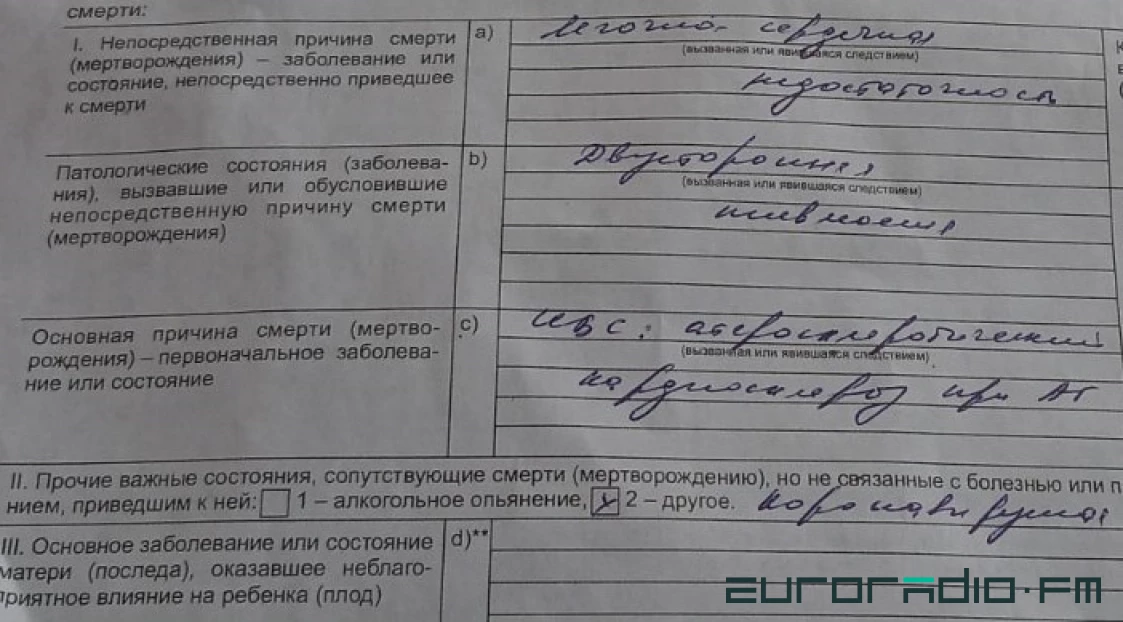 смерти:
I. Непосредственная причина смерти
(мертворождения) – заболевание или
состояние, непосредственно приведшее
к смерти
a)
Легочно-сердечная
(вызванная или явившаяся следствием)
недостаточность
Патологические состояния (заболева-
ния), вызвавшие или обусловившие
непосредственную причину смерти
(мертворождения)
b)
Двусторонняя
(вызванная или явившаяся следствием)
пневмония
Основная причина смерти (мертво-
рождения) – первоначальное заболева-
ние или состояние
c)
ИБС: атеросклеротический
(вызванная или явившаяся следствием)
кардиосклероз при АГ
II. Прочие важные состояния, сопутствующие смерти (мертворождению), но не связанные с болезнью или п
нием, приведшим к ней: 1 – алкогольное опьянение, x 2 – другое. Коронавирусная
III. Основное заболевание или состояние
матери (последа), оказавшее неблаго-
приятное влияние на ребенка (плод)
d)**
EURORADIO.FM